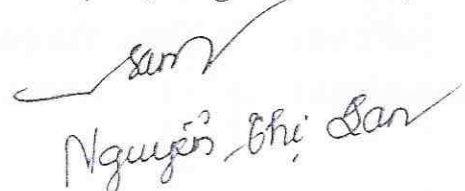 San
Nguyễn Thị San